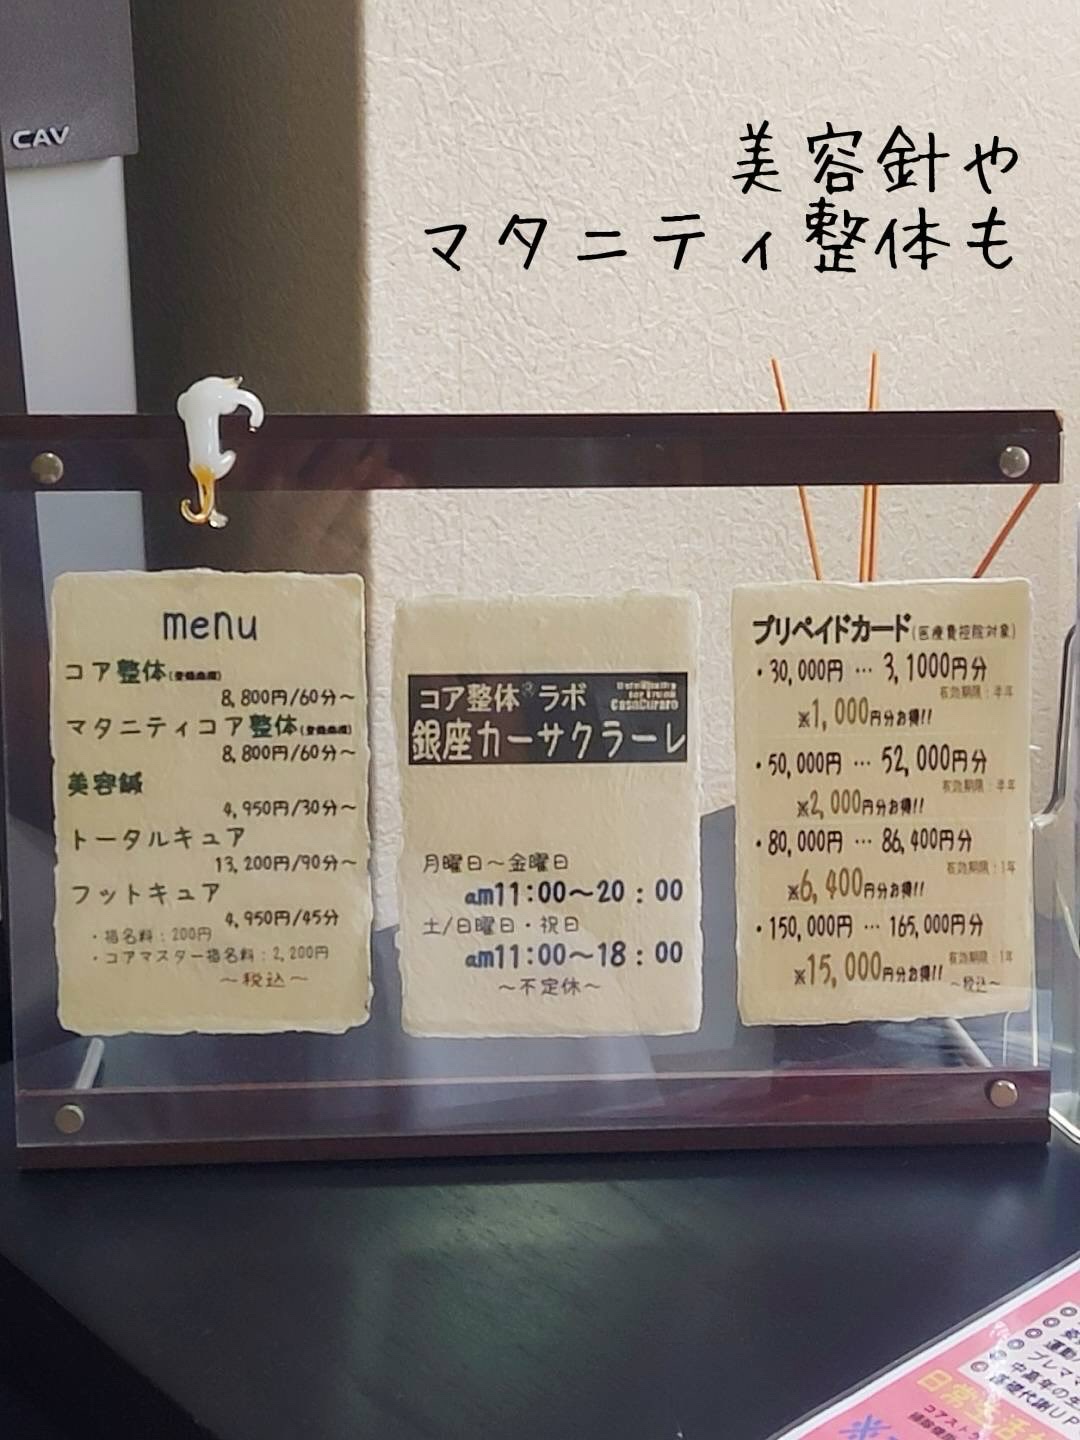 CAV
美容針や
マタニティ整体も
menu
コア整体(登録商標)
8,800円/60分～
マタニティコア整体(登録商標)
8,800円/60分～
美容鍼
4,950円/30分～
トータルキュア
13,200円/90分～
フットキュア
4,950円/45分
・指名料：200円
・コアマスター指名料：2,200円
～税込～
コア整体®ラボ
CasaCurare
銀座カーサクラーレ
月曜日～金曜日
am11:00～20：00
土/日曜日・祝日
am11:00～18：00
～不定休～
プリペイドカード(医療費控除対象)
・30,000円 … 3,1000円分
有効期限：半年
※1,000円分お得!!
・50,000円 … 52,000円分
有効期限：半年
※2,000円分お得!!
・80,000円 … 86,400円分
有効期限：1年
※6,400円分お得!!
・150,000円 … 165,000円分
有効期限：1年
※15,000円分お得!!
～税込～
運動
プレママ
中高年の
基礎代謝UP
日常生活
コアスト